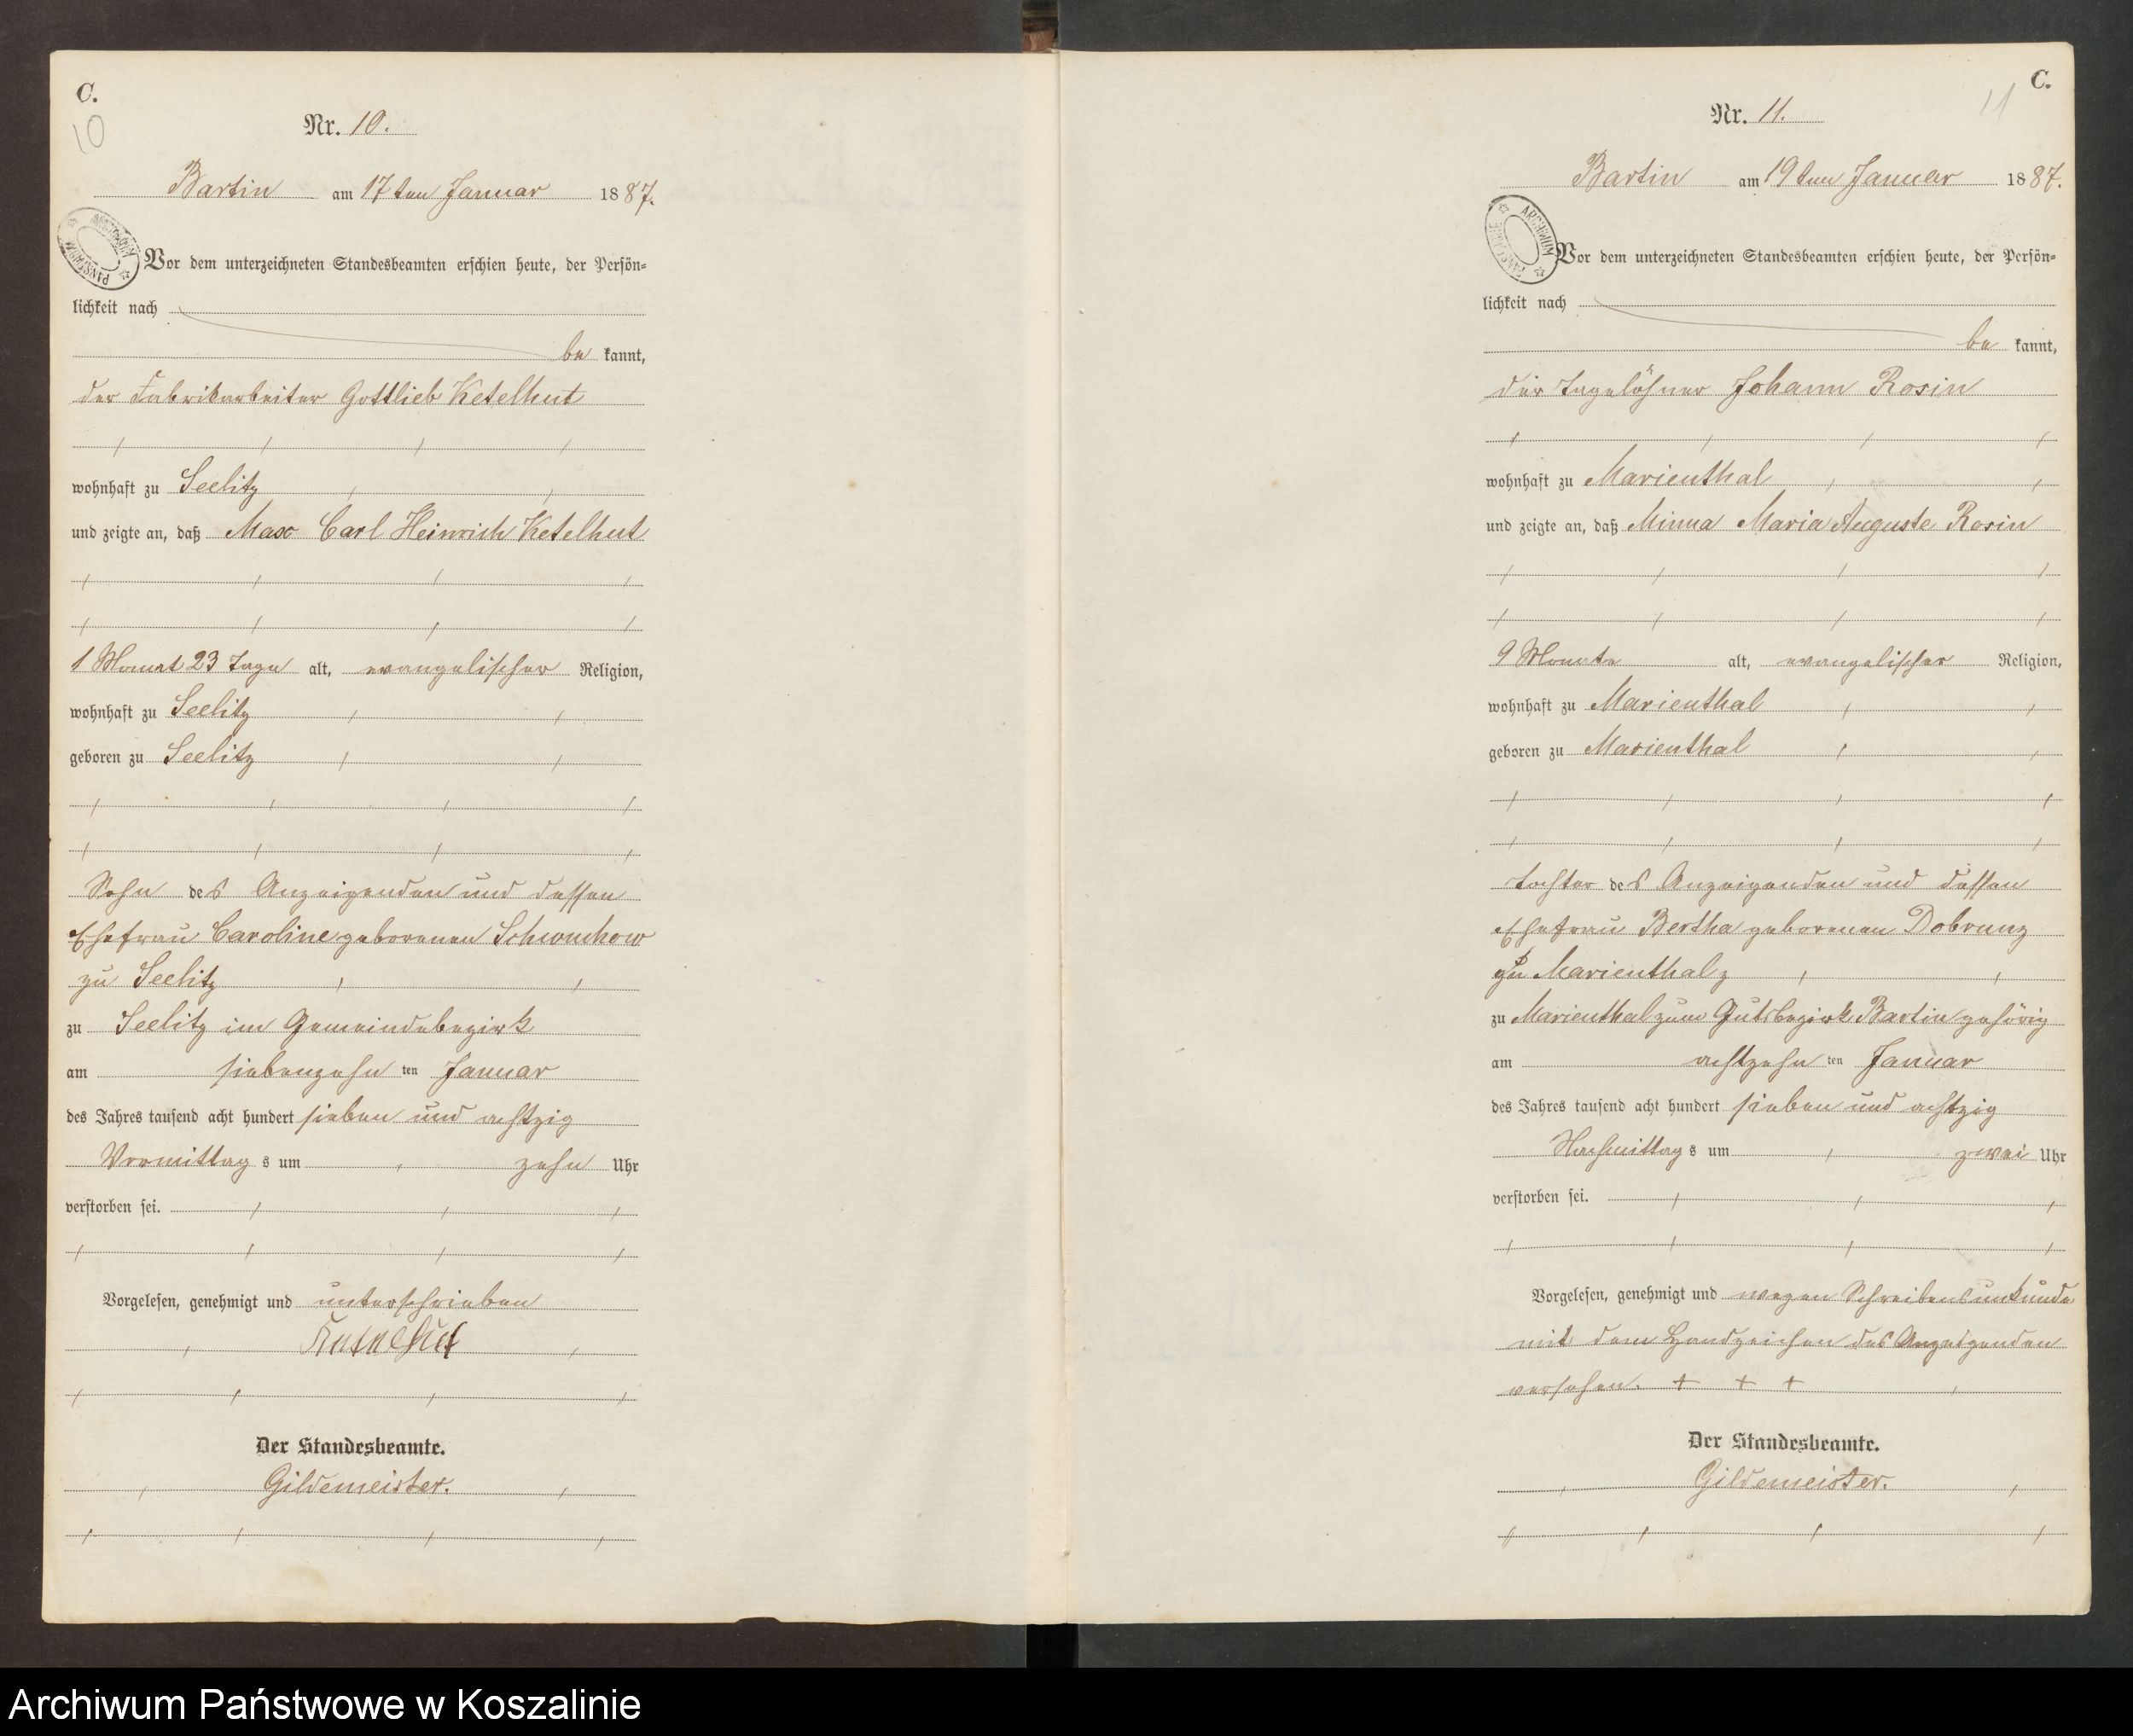 C.
10
Nr. 10.
Bartin am 17ten Januar 1887.
ARCHIWUM PAŃSTWOWE
Vor dem unterzeichneten Standesbeamten erschien heute, der Persön-
lichkeit nach
be kannt,
der Fabrikarbeiter Gottlieb Ketelhut
wohnhaft zu Seelitz
und zeigte an, daß Max Carl Heinrich Ketelhut
1 Monat 23 Tage alt, evangelischer Religion,
wohnhaft zu Seelitz
geboren zu Seelitz
Sohn des Anzeigenden und dessen
Ehefrau Caroline geborenen
zu Seelitz
zu Seelitz im Gemeindebezirk
am siebenzehn ten Januar
des Jahres tausend acht hundert sieben und achtzig
Vormittag s um zehn Uhr
verstorben sei.
Vorgelesen, genehmigt und unterschrieben
Ketelhut
Der Standesbeamte.
Gildemeister.
C.
11
Nr. 11.
Bartin am 19ten Januar 1887.
ARCHIWUM PAŃSTWOWE
Vor dem unterzeichneten Standesbeamten erschien heute, der Persön-
lichkeit nach
be kannt,
der Tagelöhner Johann Rosin
wohnhaft zu Marienthal
und zeigte an, daß Minna Maria Auguste Rosin
9 Monate alt, evangelischer Religion,
wohnhaft zu Marienthal
geboren zu Marienthal
Tochter des Anzeigenden und dessen
Ehefrau Bertha geborenen Dobrunz
zu Marienthal
zu Marienthal zum Gutsbezirk Bartin gehörig
am achtzehn ten Januar
des Jahres tausend acht hundert sieben und achtzig
Nachmittag s um zwei Uhr
verstorben sei.
Vorgelesen, genehmigt und wegen Schreibensunkunde
mit dem Handzeichen des Anzeigenden
versehen. + + +
Der Standesbeamte.
Gildemeister.
Archiwum Państwowe w Koszalinie